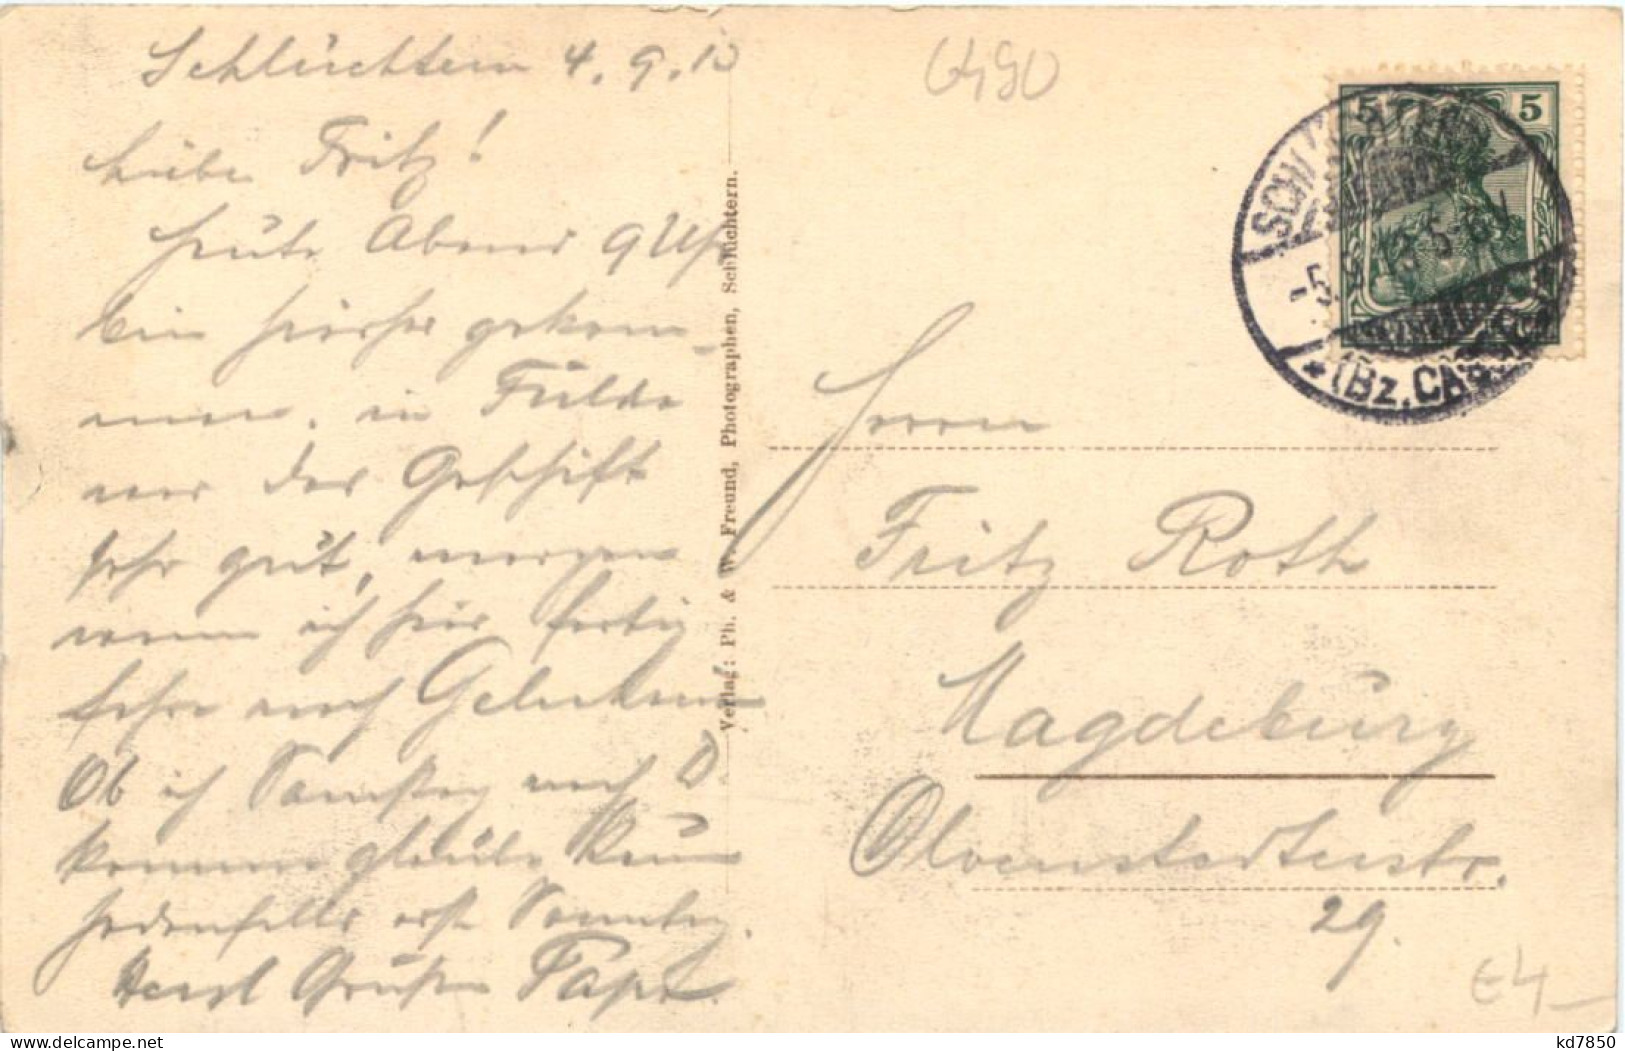 Schlüchtern 4.9.13
Lieber Fritz!
heute Abend 9 Uhr
bin hierher gekom-
men, in Fulda
war das Geschäft
sehr gut, morgen
wenn ich hier fertig
fahre nach Gelnhausen
Ob ich Samstag nach D
komme glaube kaum
jedenfalls erst Sonntag.
Herzl Grüße Papa.
Verlag: Ph. & W. Freund, Photographen, Schlüchtern.
6490
5 5
SCHLÜCHTERN
-5.9.13 5-6 N
* (Bz. CASSEL)
Herrn
Fritz Roth
Magdeburg
Olvenstedterstr.
29.
€4-
kd7850